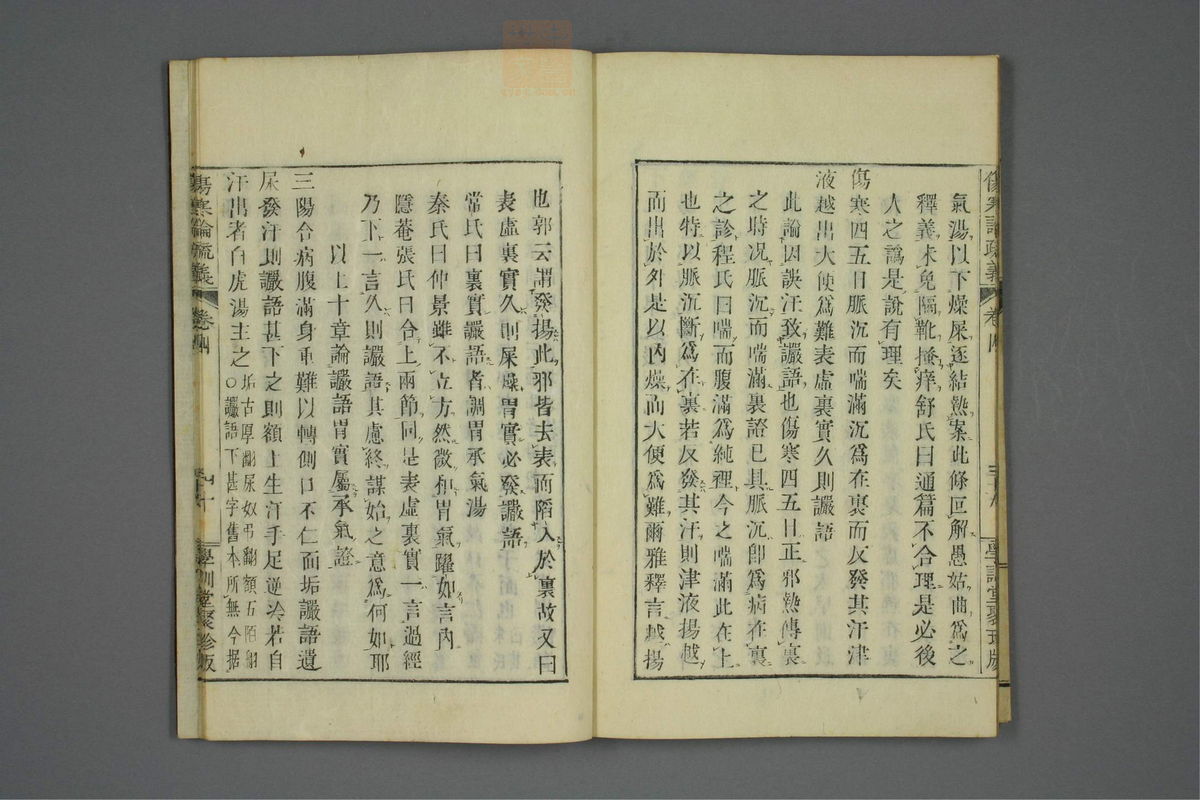 傷寒論疏義
卷四
學訓堂聚珍版
氣湯以下燥屎逐結熱案此條叵解愚姑曲爲之
釋義未免隔靴搔痒舒氏曰通篇不合理是必後
人之譌是說有理矣
傷寒四五日脈沉而喘滿沉爲在裏而反發其汗津
液越出大便爲難表虛裏實久則讝語
此論因誤汗致讝語也傷寒四五日正邪熱傳裏
之時况脈沉而喘滿裏證已具脈沉卽爲病在裏
之診程氏曰喘而腹滿爲純裡今之喘滿此在上
也特以脈沉斷爲在裏若反發其汗則津液揚越
而出於外是以內燥而大便爲難爾雅釋言越揚
也郭云謂發揚此邪皆去表而陷入於裏故又曰
表虛裏實久則屎燥胃實必發讝語
常氏曰裏實讝語者調胃承氣湯
秦氏曰仲景雖不立方然微和胃氣躍如言內
隱菴張氏曰合上兩節同是表虛裏實一言過經
乃下一言久則讝語其慮終謀始之意爲何如耶
以上十章論讝語胃實屬承氣證
三陽合病腹滿身重難以轉側口不仁面垢讝語遺
尿發汗則讝語甚下之則額上生汗手足逆冷若自
汗出者白虎湯主之
垢古厚翻尿奴弔翻額五陌翻
○讝語下甚字舊本所無今据
傷寒論疏義
卷四
四十
學訓堂聚珍版